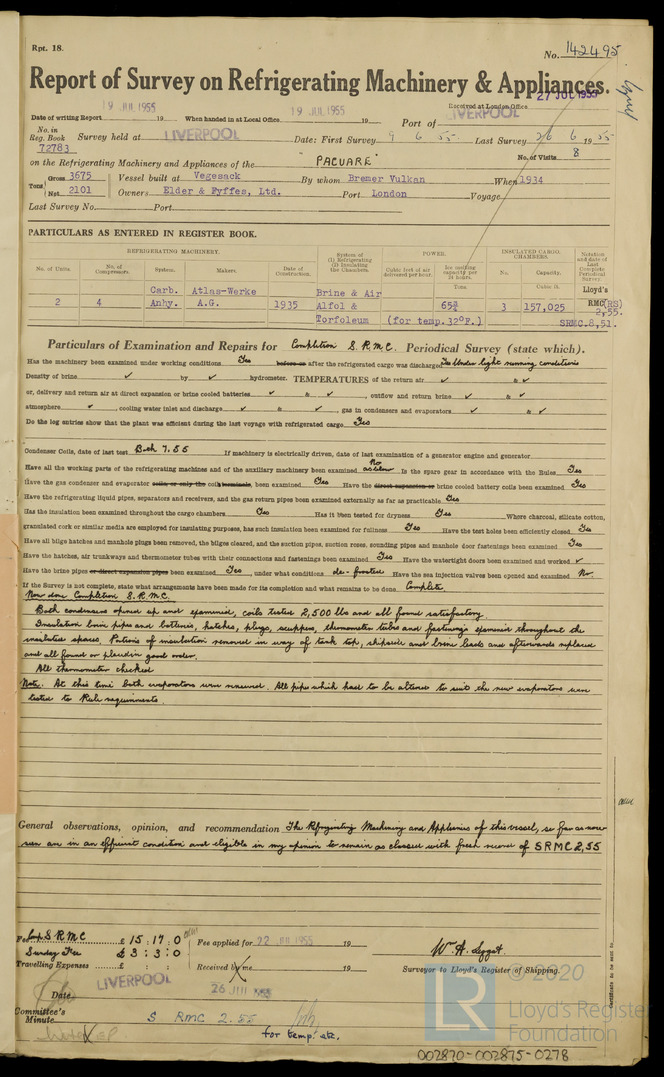 Rpt. 18.
No. 142495
Report of Survey on Refrigerating Machinery & Appliances.
19 JUL 1955 19 JUL 1955 Received at London Office 27 JUL 1955
Date of writing Report 19 When handed in at Local Office 19 Port of LIVERPOOL
No. in Reg. Book Survey held at LIVERPOOL Date: First Survey 9 6 55 Last Survey 26 6 1955
72783 No. of Visits 8
on the Refrigerating Machinery and Appliances of the "PACUARE"
Tons Gross 3675 Vessel built at Vegesack By whom Bremer Vulkan When 1934
Net 2101 Owners Elder & Fyffes, Ltd. Port London Voyage
Last Survey No. Port
PARTICULARS AS ENTERED IN REGISTER BOOK.
REFRIGERATING MACHINERY. System of (1) Refrigerating (2) Insulating the Chambers. POWER. INSULATED CARGO CHAMBERS. Notation and date of Last Complete Periodical Survey.
No. of Units. No. of Compressors. System. Makers. Date of Construction. Cubic feet of air delivered per hour. Ice melting capacity per 24 hours. Tons. No. Capacity. Cubic ft.
Carb. Atlas-Werke Brine & Air Lloyd's
2 4 Anhy. A.G. 1935 Alfol & 65¾ 3 157,025 RMC(RS) 2,55.
Torfoleum (for temp.32°F.) SRMC.8,51.
Particulars of Examination and Repairs for Completion S.R.M.C. Periodical Survey (state which).
Has the machinery been examined under working conditions Yes before or after the refrigerated cargo was discharged Yes Under light running conditions
Density of brine ✓ by ✓ hydrometer. TEMPERATURES of the return air ✓ & ✓
or, delivery and return air at direct expansion or brine cooled batteries ✓ & ✓, outflow and return brine ✓ & ✓
atmosphere ✓, cooling water inlet and discharge ✓ & ✓, gas in condensers and evaporators ✓ & ✓
Do the log entries show that the plant was efficient during the last voyage with refrigerated cargo Yes
Condenser Coils, date of last test Both 7.55 If machinery is electrically driven, date of last examination of a generator engine and generator
Have all the working parts of the refrigerating machines and of the auxiliary machinery been examined No as below Is the spare gear in accordance with the Rules Yes
Have the gas condenser and evaporator coils or only the coil terminals, been examined Yes Have the direct expansion or brine cooled battery coils been examined Yes
Have the refrigerating liquid pipes, separators and receivers, and the gas return pipes been examined externally as far as practicable Yes
Has the insulation been examined throughout the cargo chambers Yes Has it been tested for dryness Yes Where charcoal, silicate cotton,
granulated cork or similar media are employed for insulating purposes, has such insulation been examined for fullness Yes Have the test holes been efficiently closed Yes
Have all bilge hatches and manhole plugs been removed, the bilges cleared, and the suction pipes, suction roses, sounding pipes and manhole door fastenings been examined Yes
Have the hatches, air trunkways and thermometer tubes with their connections and fastenings been examined Yes Have the watertight doors been examined and worked ✓
Have the brine pipes or direct expansion pipes been examined Yes, under what conditions de-frosted Have the sea injection valves been opened and examined No.
If the Survey is not complete, state what arrangements have been made for its completion and what remains to be done. Complete
Now done Completion S.R.M.C.
Both condensers opened up and examined, coils tested 2,500 lbs and all found satisfactory.
Insulation brine pipes and batteries, hatches, plugs, scuppers, thermometer tubes and fastenings examined throughout the
insulated spaces. Portions of insulation removed in way of tank top, shipside and brine leads and afterwards replaced
and all found or placed in good order.
All thermometers checked
Note: At this time both evaporators were renewed. All pipes which had to be altered to suit the new evaporators were
tested to Rule requirements.
General observations, opinion, and recommendation The Refrigerating Machinery and Appliances of this vessel, so far as now
seen are in an efficient condition and eligible in my opinion to remain as classed with fresh record of SRMC 2,55
Fee Comp. S R M C £ 15 : 17 : 0 Fee applied for 22 JUL 1955 19
Sunday Fee £ 3 : 3 : 0
Travelling Expenses £ : : Received by me 19 Surveyor to Lloyd's Register of Shipping.
Date LIVERPOOL 26 JUL 1955
Committee's Minute S RMC 2.55
for temp. etc.
Certificate to be sent to
LR © 2020
Lloyd's Register
Foundation
002870-002875-0278